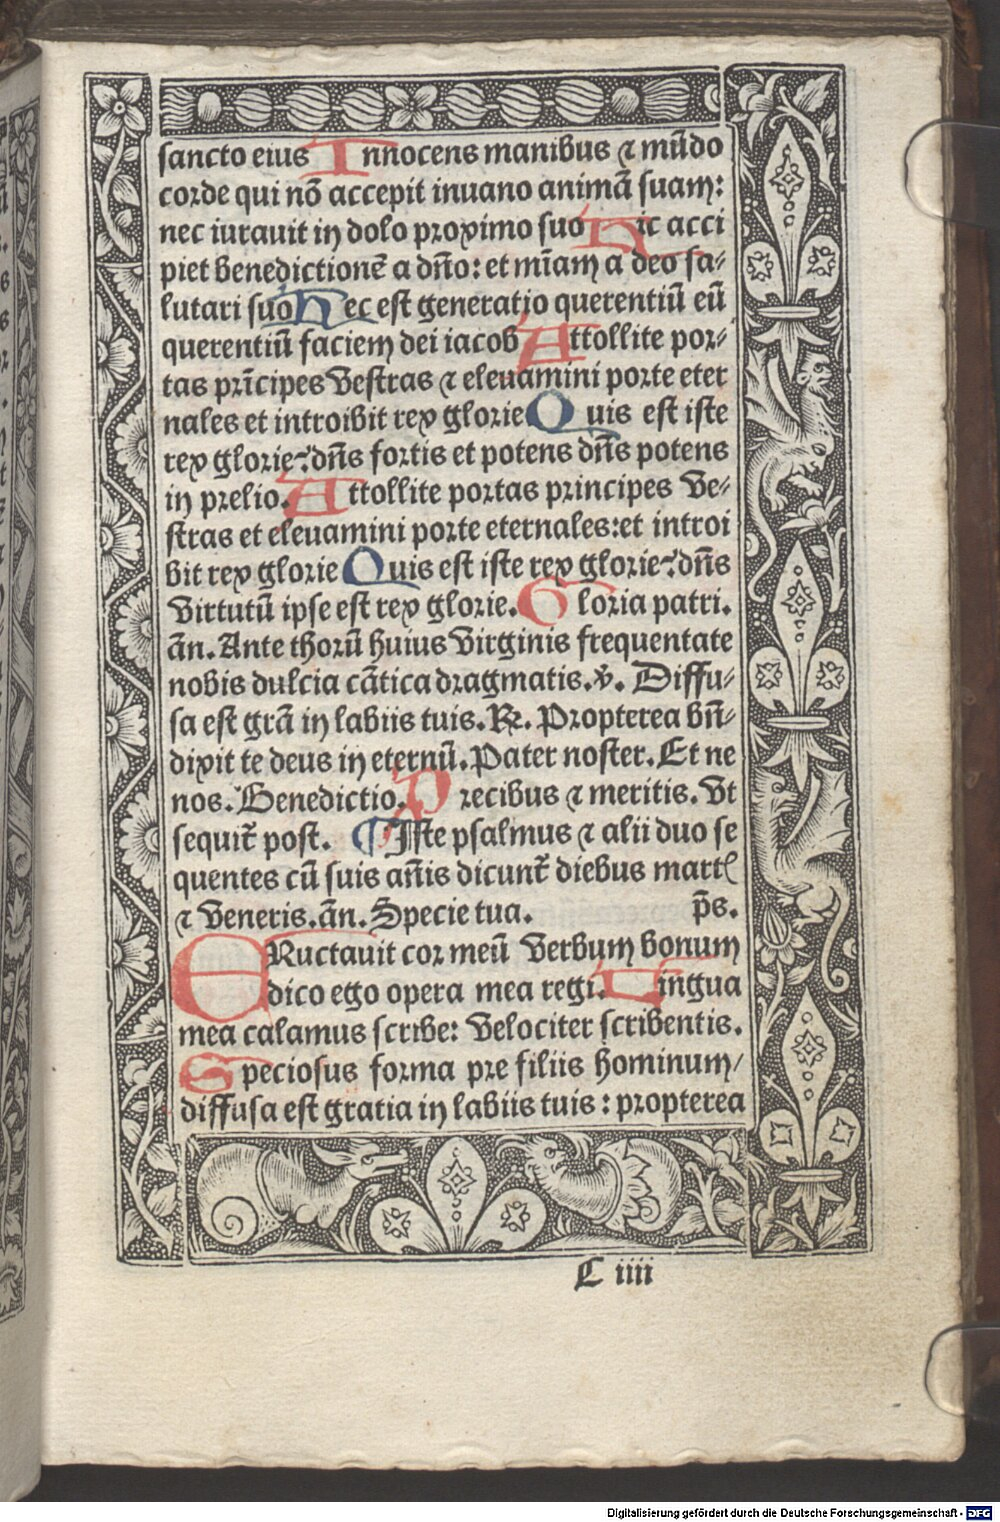 sancto eius Innocens manibus ⁊ mūdo
corde qui nō accepit in uano animā suam:
nec iurauit in dolo proximo suo Hic acci
piet benedictionē a dn̄o: et mīam a deo sa-
lutari suo Hec est generatio querentiū eū
querentiū faciem dei iacob Attollite por-
tas prīcipes vestras ⁊ eleuamini porte eter
nales et introibit rex glorie Quis est iste
rex glorie? dn̄s fortis et potens dn̄s potens
in prelio. Attollite portas principes ve-
stras et eleuamini porte eternales: et introi
bit rex glorie Quis est iste rex glorie? dn̄s
virtutū ipse est rex glorie. Gloria patri.
ān. Ante thorū huius virginis frequentate
nobis dulcia cātica dragmatis. ℣. Diffu-
sa est grā in labiis tuis. ℞. Propterea bn̄-
dixit te deus in eternū. Pater noster. Et ne
nos. Benedictio. Precibus ⁊ meritis. Vt
sequit̄ post. ¶ Iste psalmus ⁊ alii duo se
quentes cū suis an̄is dicunt̄ diebus martꝭ
⁊ veneris. ān. Specie tua. p̄s.
ERuctauit cor meū verbum bonum
dico ego opera mea regi. Lingua
mea calamus scribe: velociter scribentis.
Speciosus forma pre filiis hominum/
diffusa est gratia in labiis tuis: propterea
C iiii
Digitalisierung gefördert durch die Deutsche Forschungsgemeinschaft - DFG